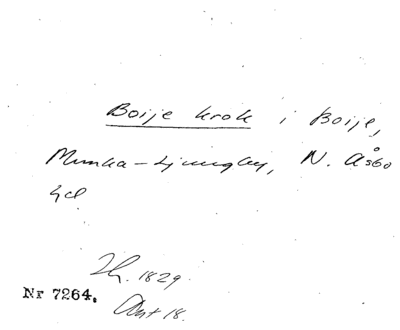 Boije krok i Boije,
Munka-Ljungby, N. Åsbo
hd
Th. 1829
Nr 7264. Ant 18.